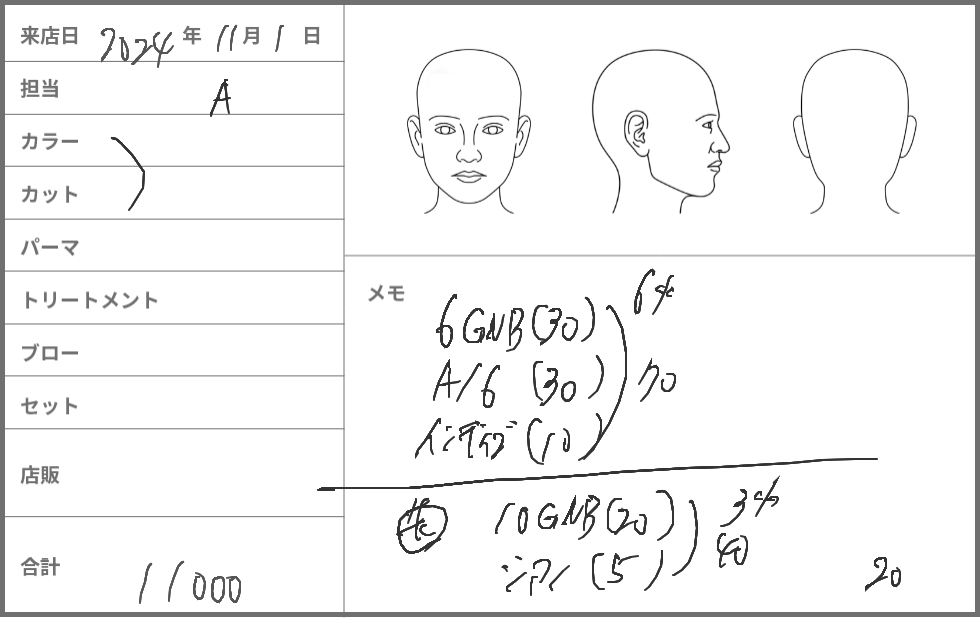 来店日 2024年 11月 1日
担当 A
カラー
カット
パーマ
トリートメント
ブロー
セット
店販
合計 11000
メモ
6GNB(30) 6%
A/6 (30) 70
インディゴ(10)
10GNB(20) 3%
シアン(5) 40
20